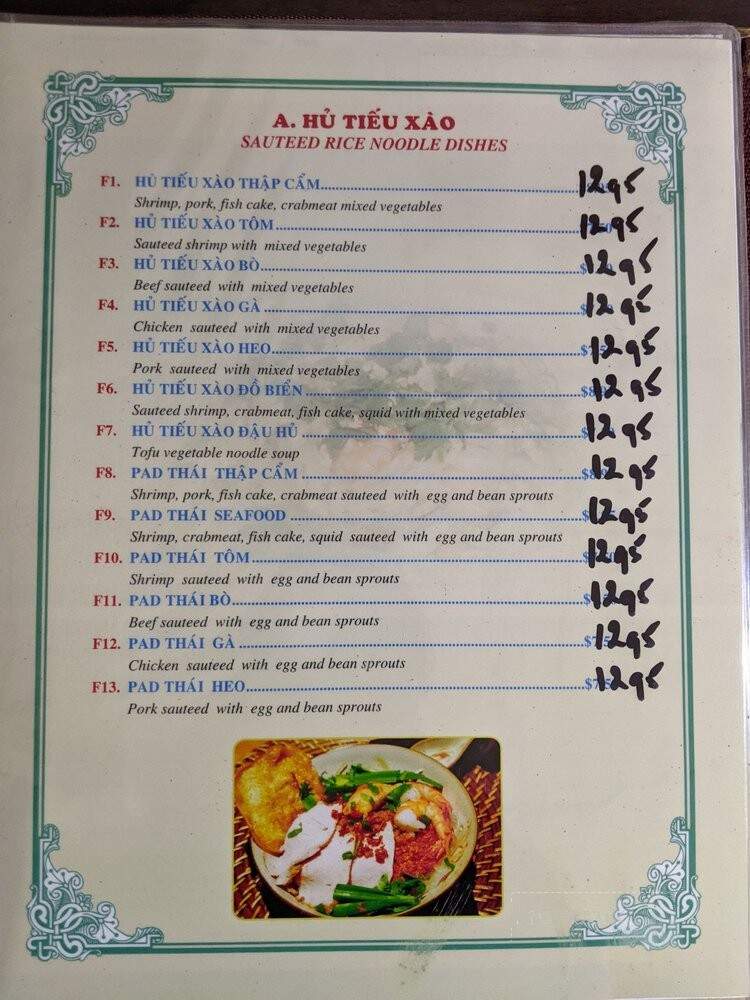 A. HỦ TIẾU XÀO
SAUTEED RICE NOODLE DISHES
F1. HỦ TIẾU XÀO THẬP CẨM 12.95
Shrimp, pork, fish cake, crabmeat mixed vegetables
F2. HỦ TIẾU XÀO TÔM 12.95
Sauteed shrimp with mixed vegetables
F3. HỦ TIẾU XÀO BÒ 12.95
Beef sauteed with mixed vegetables
F4. HỦ TIẾU XÀO GÀ 12.95
Chicken sauteed with mixed vegetables
F5. HỦ TIẾU XÀO HEO 12.95
Pork sauteed with mixed vegetables
F6. HỦ TIẾU XÀO ĐỒ BIỂN 12.95
Sauteed shrimp, crabmeat, fish cake, squid with mixed vegetables
F7. HỦ TIẾU XÀO ĐẬU HỦ 12.95
Tofu vegetable noodle soup
F8. PAD THÁI THẬP CẨM 12.95
Shrimp, pork, fish cake, crabmeat sauteed with egg and bean sprouts
F9. PAD THÁI SEAFOOD 12.95
Shrimp, crabmeat, fish cake, squid sauteed with egg and bean sprouts
F10. PAD THÁI TÔM 12.95
Shrimp sauteed with egg and bean sprouts
F11. PAD THÁI BÒ 12.95
Beef sauteed with egg and bean sprouts
F12. PAD THÁI GÀ 12.95
Chicken sauteed with egg and bean sprouts
F13. PAD THÁI HEO 12.95
Pork sauteed with egg and bean sprouts